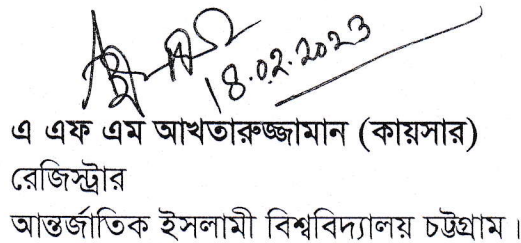 18.02.2023
এ এফ এম আখতারুজ্জামান (কায়সার)
রেজিস্ট্রার
আন্তর্জাতিক ইসলামী বিশ্ববিদ্যালয় চট্টগ্রাম।